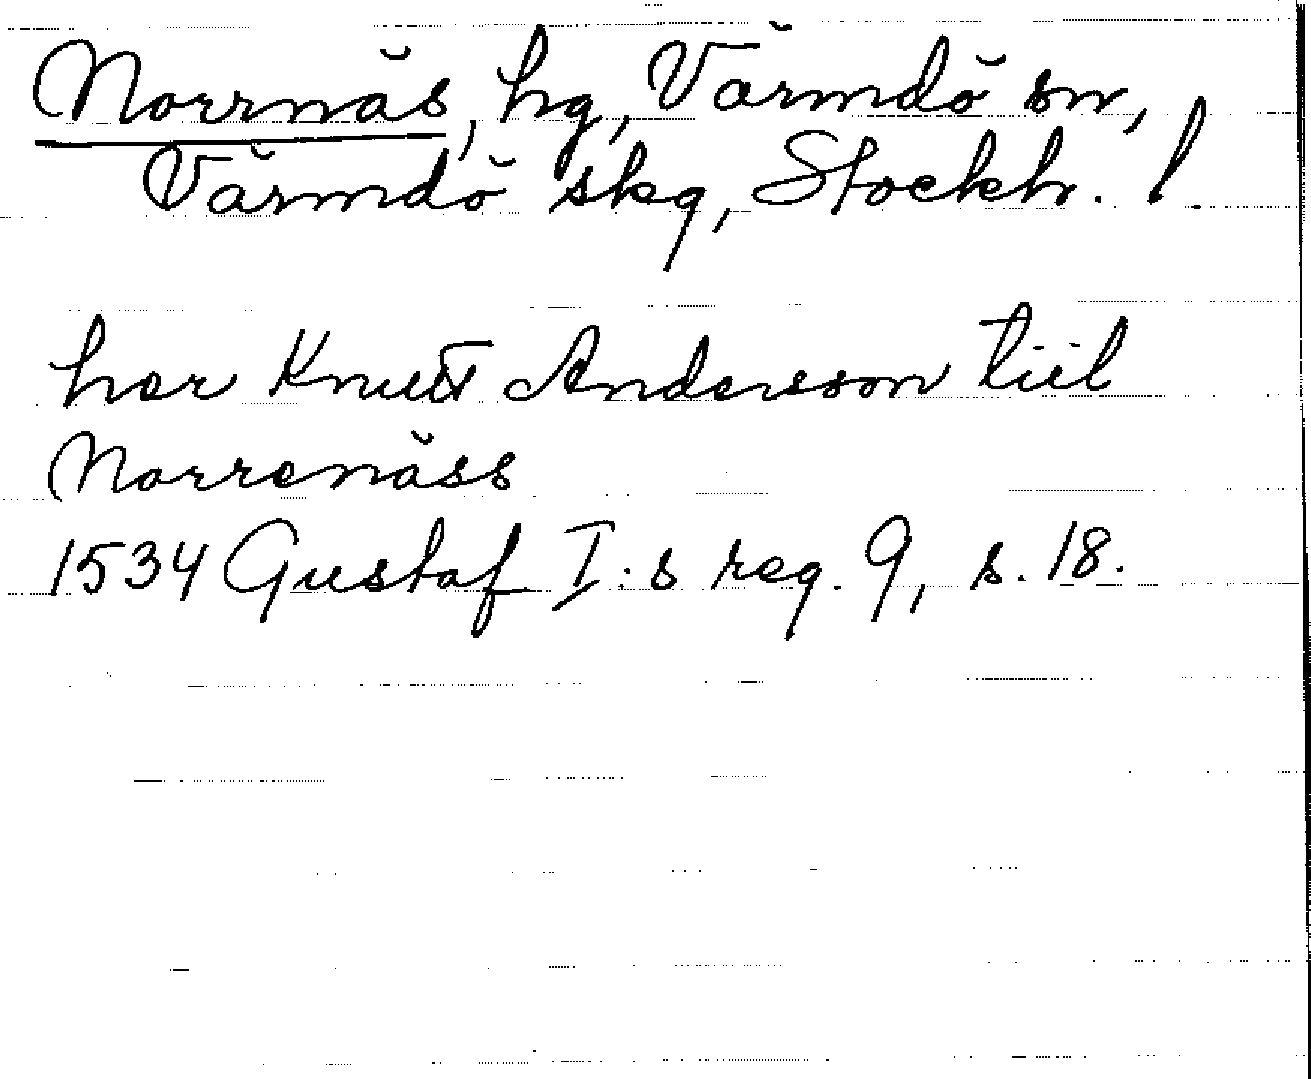 Norrnäs, hg, Värmdö sn,
Värmdö skg, Stockh. l.
her Knutt Andersson tiil
Norrenäss
1534 Gustaf I:s reg. 9, s. 18.